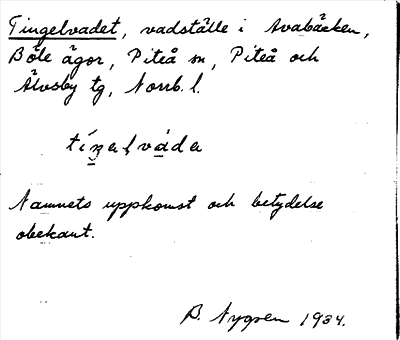 Tingelvadet, vadställe i Avabäcken,
Böle ägor, Piteå sn, Piteå och
Älvsby tg, Norrb. l.
tíŋelváda
Namnets uppkomst och betydelse
obekant.
B. Nygren 1934.